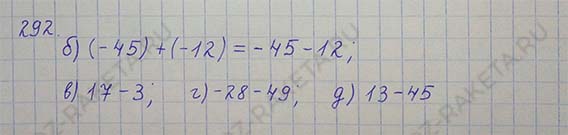 292.
б) (-45) + (-12) = -45 - 12;
в) 17 - 3; г) -28 - 49; д) 13 - 45